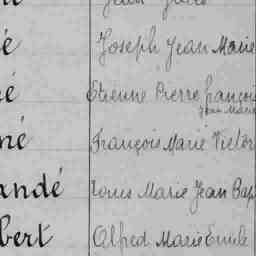 Jean
é Joseph Jean Marie
é Etienne Pierre françois
Jean Marie
né François Marie Victor
andé Louis Marie Jean Bap
bert Alfred Marie Emile